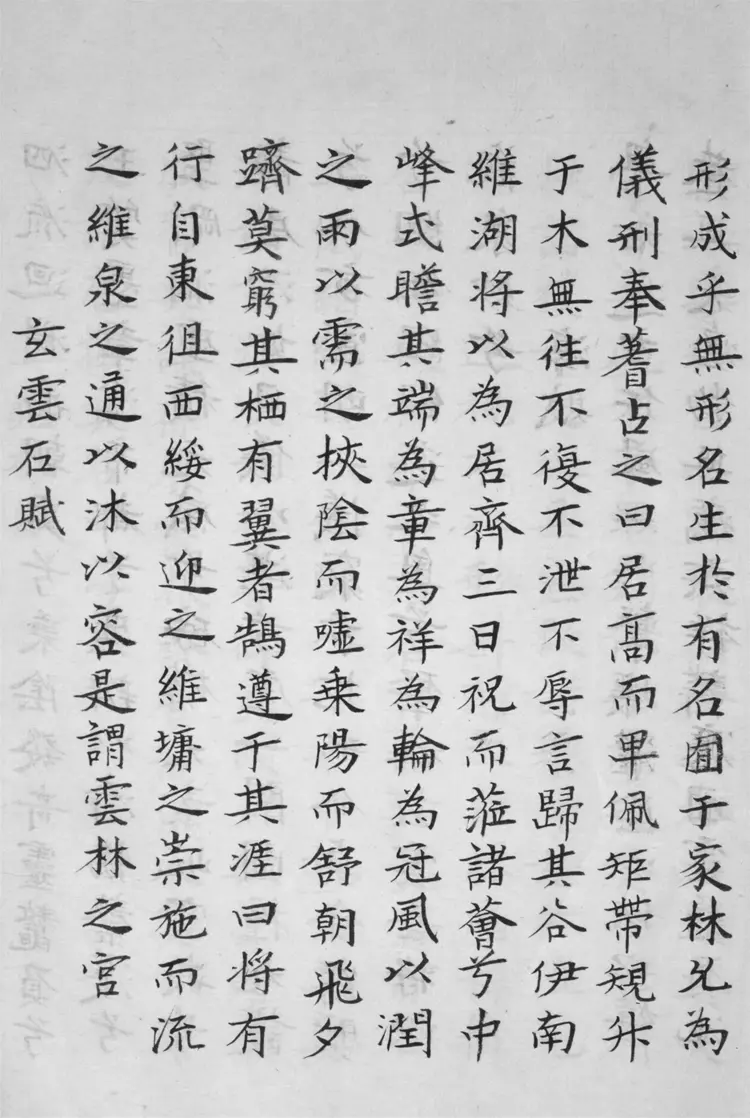 形成乎無形名生於有名囿于家林允為
儀刑奉蓍占之曰居高而卑佩矩帶規升
于木無徃不復不泄不辱言歸其谷伊南
維湖将以為居齊三日祝而蒞諸薈兮中
峰式瞻其端為章為祥為輪為冠風以潤
之雨以需之挾陰而噓乗陽而舒朝飛夕
躋莫窮其栖有翼者鵠遵于其涯曰将有
行自東徂西綏而迎之維墉之崇施而流
之維泉之通以沐以容是謂雲林之宮
玄雲石賦